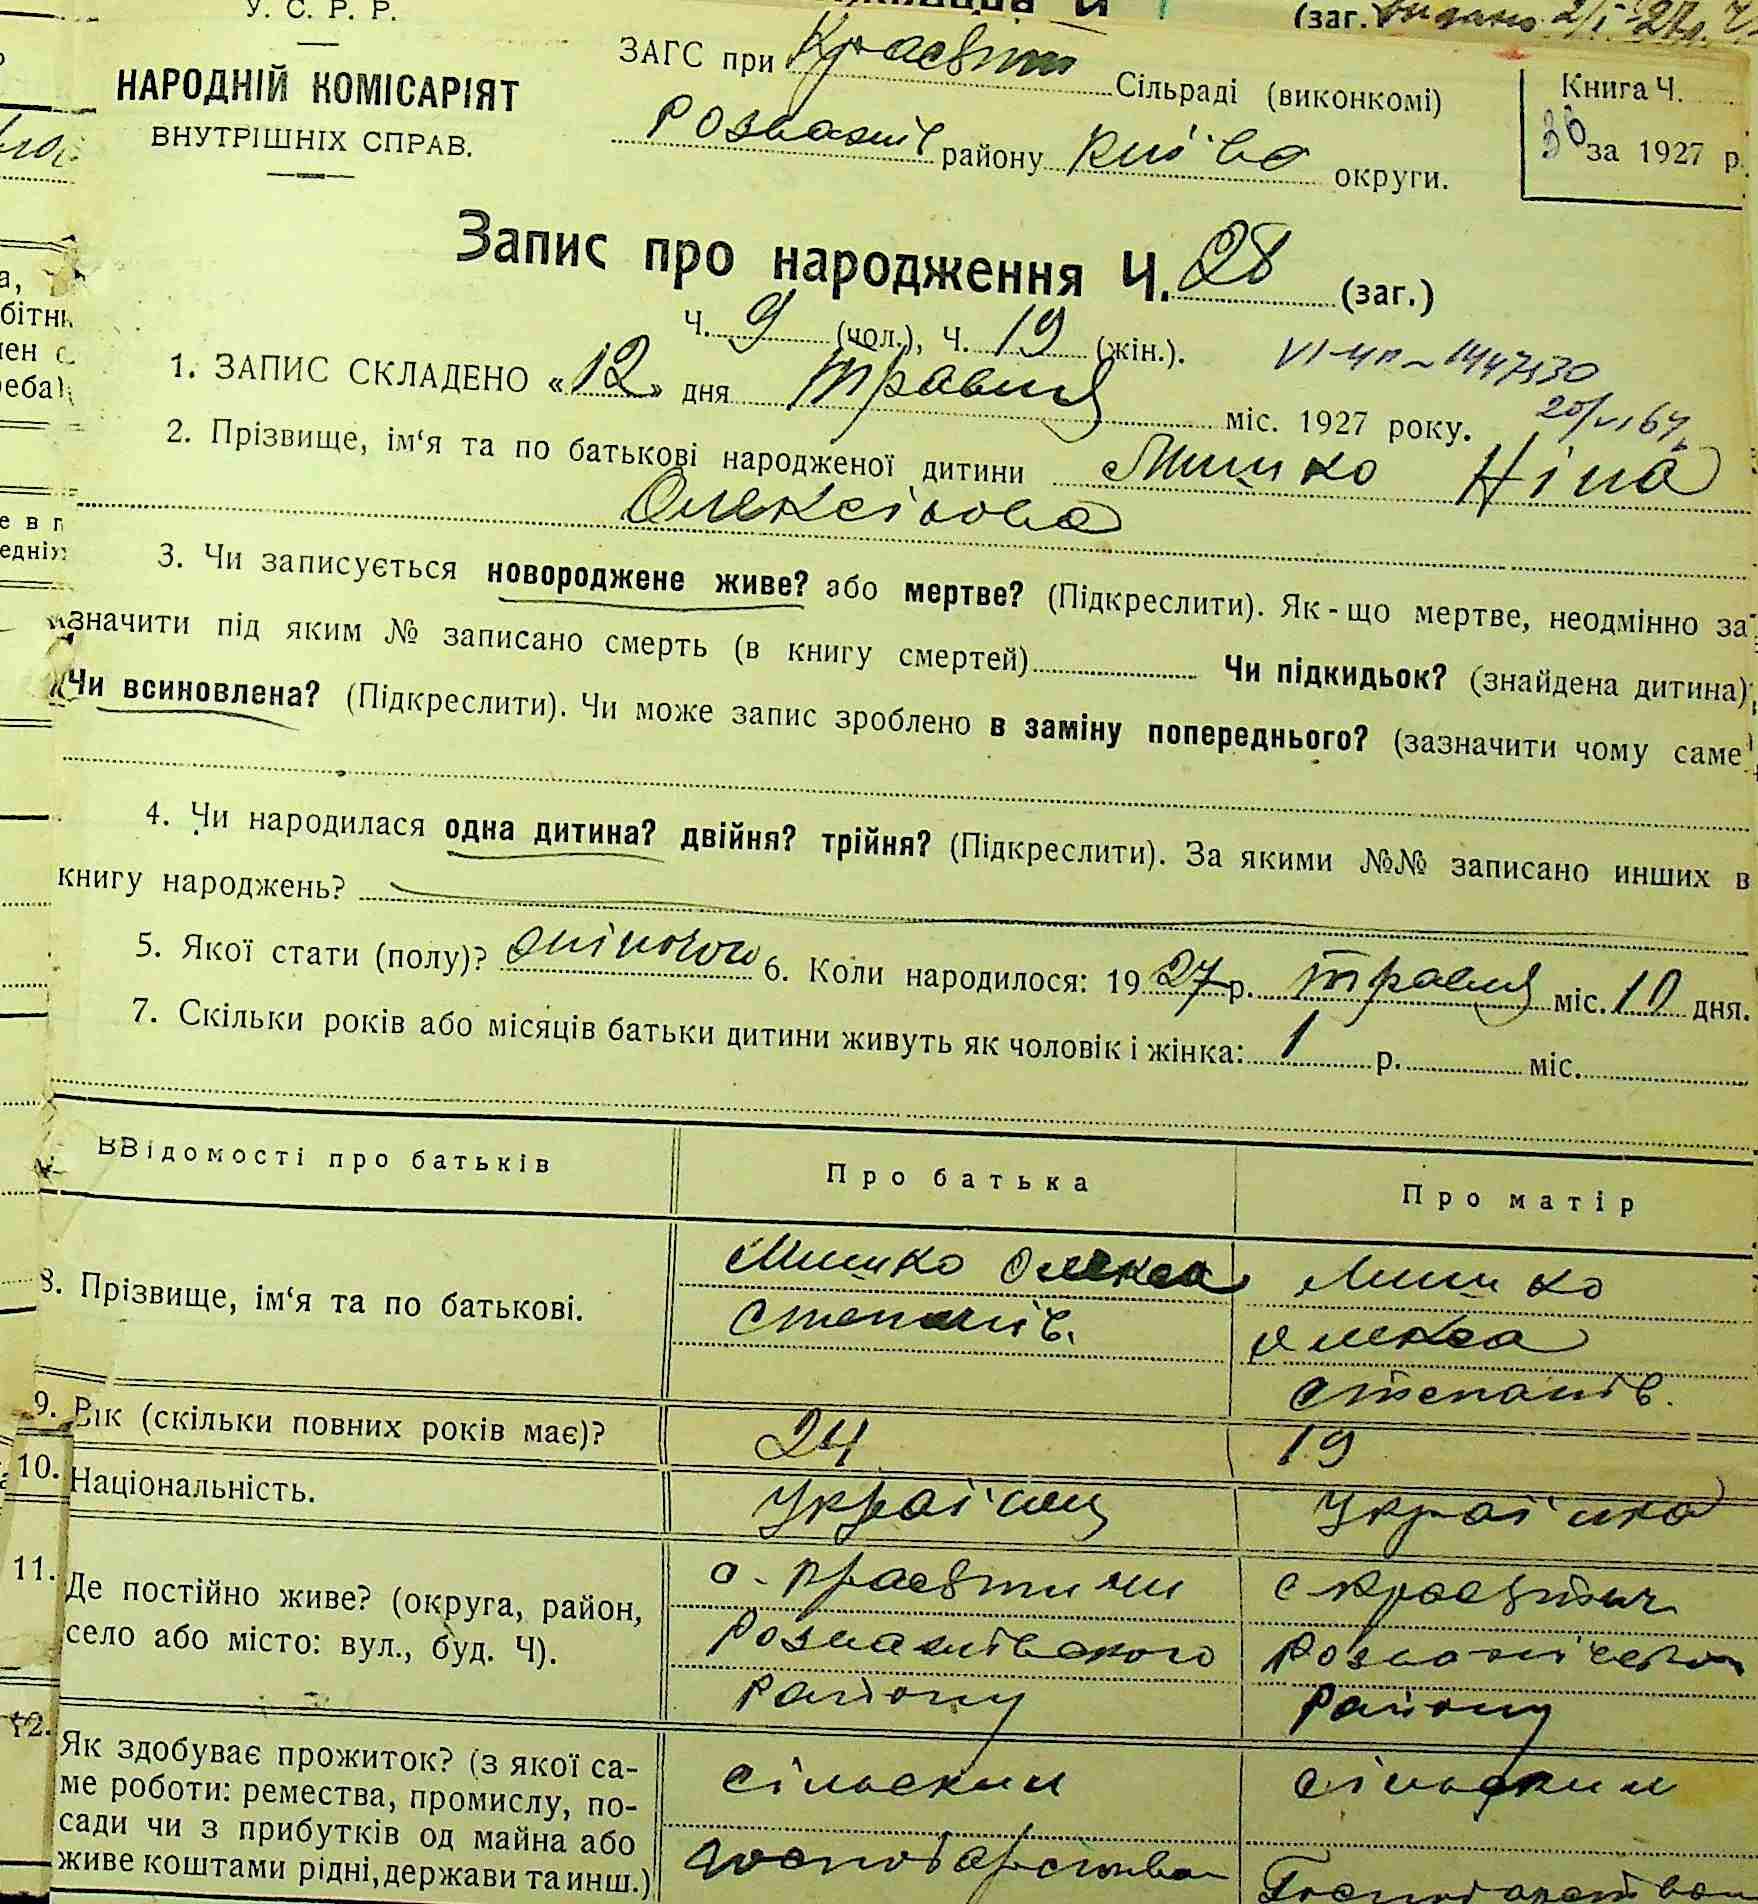 У. С. Р. Р.
НАРОДНІЙ КОМІСАРІЯТ
ВНУТРІШНІХ СПРАВ.
(заг. видано
ЗАГС при Красяти Сільраді (виконкомі)
Розважів району Київс округи.
Книга Ч.
36 за 1927 р.
Запис про народження Ч. 28 (заг.)
Ч. 9 (чол.), Ч. 19 (жін.).
1. ЗАПИС СКЛАДЕНО «12» дня травня міс. 1927 року.
2. Прізвище, ім‘я та по батькові народженої дитини Мишко Ніна
Олексіювна
3. Чи записується новороджене живе? або мертве? (Підкреслити). Як-що мертве, неодмінно за
значити під яким № записано смерть (в книгу смертей) Чи підкидьок? (знайдена дитина)
Чи всиновлена? (Підкреслити). Чи може запис зроблено в заміну попереднього? (зазначити чому саме
4. Чи народилася одна дитина? двійня? трійня? (Підкреслити). За якими №№ записано инших в
книгу народжень?
5. Якої стати (полу)? жіночої 6. Коли народилося: 1927 р. травня міс. 10 дня.
7. Скільки років або місяців батьки дитини живуть як чоловік і жінка: 1 р. міс.
ВВідомості про батьків Про батька Про матір
8. Прізвище, ім‘я та по батькові. Мишко Олекса Мишко
Степанів.
Степанів.
9. Вік (скільки повних років має)? 24 19
10. Національність. Українец Українка
11. Де постійно живе? (округа, район,
село або місто: вул., буд. Ч).
с. Красятичи с Красятич
Розважівського
району району
12. Як здобуває прожиток? (з якої са-
ме роботи: ремества, промислу, по-
сади чи з прибутків од майна або
живе коштами рідні, держави та инш.)
сільским сільским
господарством Господарством